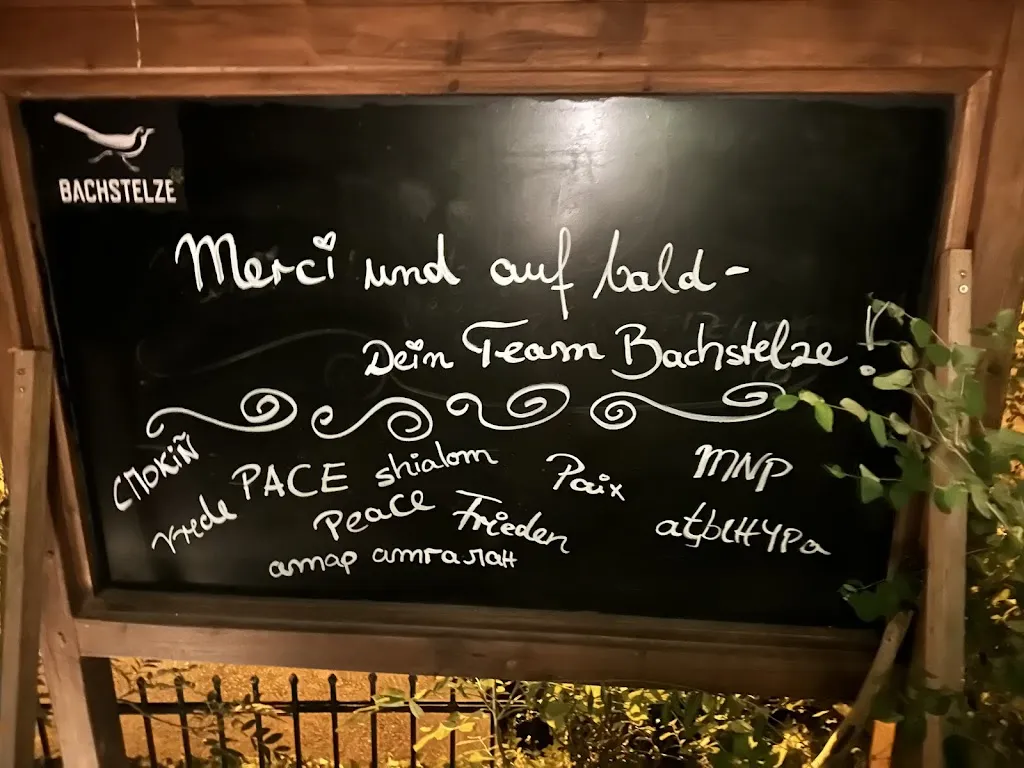 BACHSTELZE
Merci und auf bald -
Dein Team Bachstelze!
СПОКІЙ PACE shialom Paix МNР
vrede Peace Frieden аҭынчра
амар амгалан